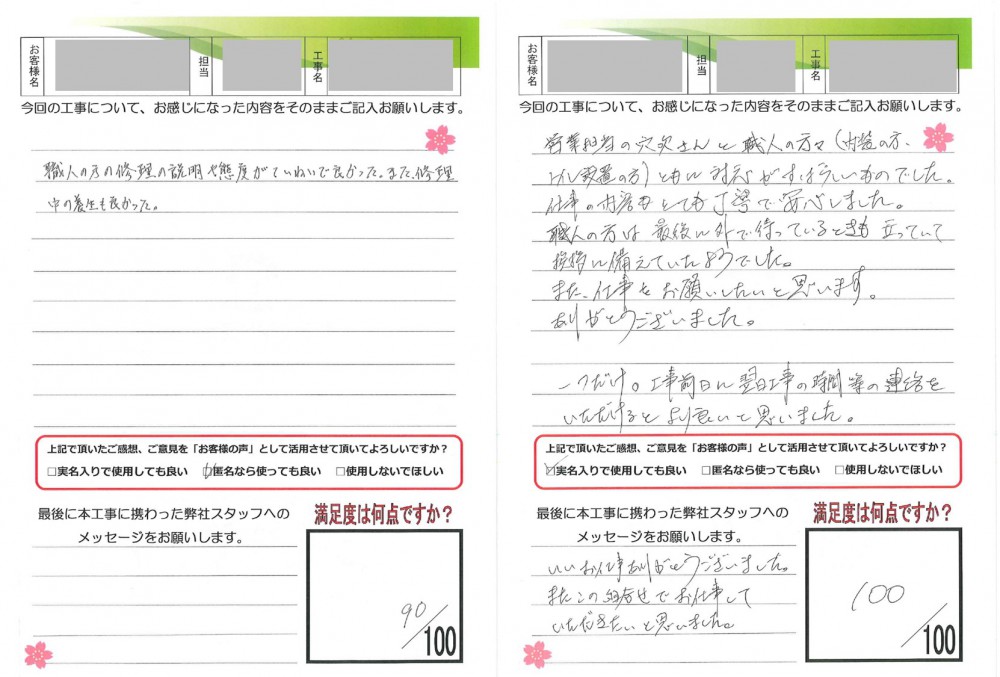 お客様名
担当
工事名
今回の工事について、お感じになった内容をそのままご記入お願いします。
職人の方の修理の説明や態度がていねいで良かった。また、修理
中の養生も良かった。
上記で頂いたご感想、ご意見を「お客様の声」として活用させて頂いてよろしいですか？
□実名入りで使用しても良い □匿名なら使っても良い □使用しないでほしい
最後に本工事に携わった弊社スタッフへの
メッセージをお願いします。
満足度は何点ですか？
90/100
お客様名
担当
工事名
今回の工事について、お感じになった内容をそのままご記入お願いします。
営業担当の穴久さんと職人の方々（内装の方、
トイレ設置の方）ともに対応がすばらしいものでした。
仕事の内容もとても丁寧で安心しました。
職人の方は最後に外で待っているときも立っていて
挨拶に備えていたようでした。
また、仕事をお願いしたいと思います。
ありがとうございました。
一つだけ。工事前日に翌日工事の時間等の連絡を
いただけるとより良いと思いました。
上記で頂いたご感想、ご意見を「お客様の声」として活用させて頂いてよろしいですか？
□実名入りで使用しても良い □匿名なら使っても良い □使用しないでほしい
最後に本工事に携わった弊社スタッフへの
メッセージをお願いします。
いいお仕事ありがとうございました。
またこの組合せでお仕事して
いただきたいと思いました。
満足度は何点ですか？
100/100